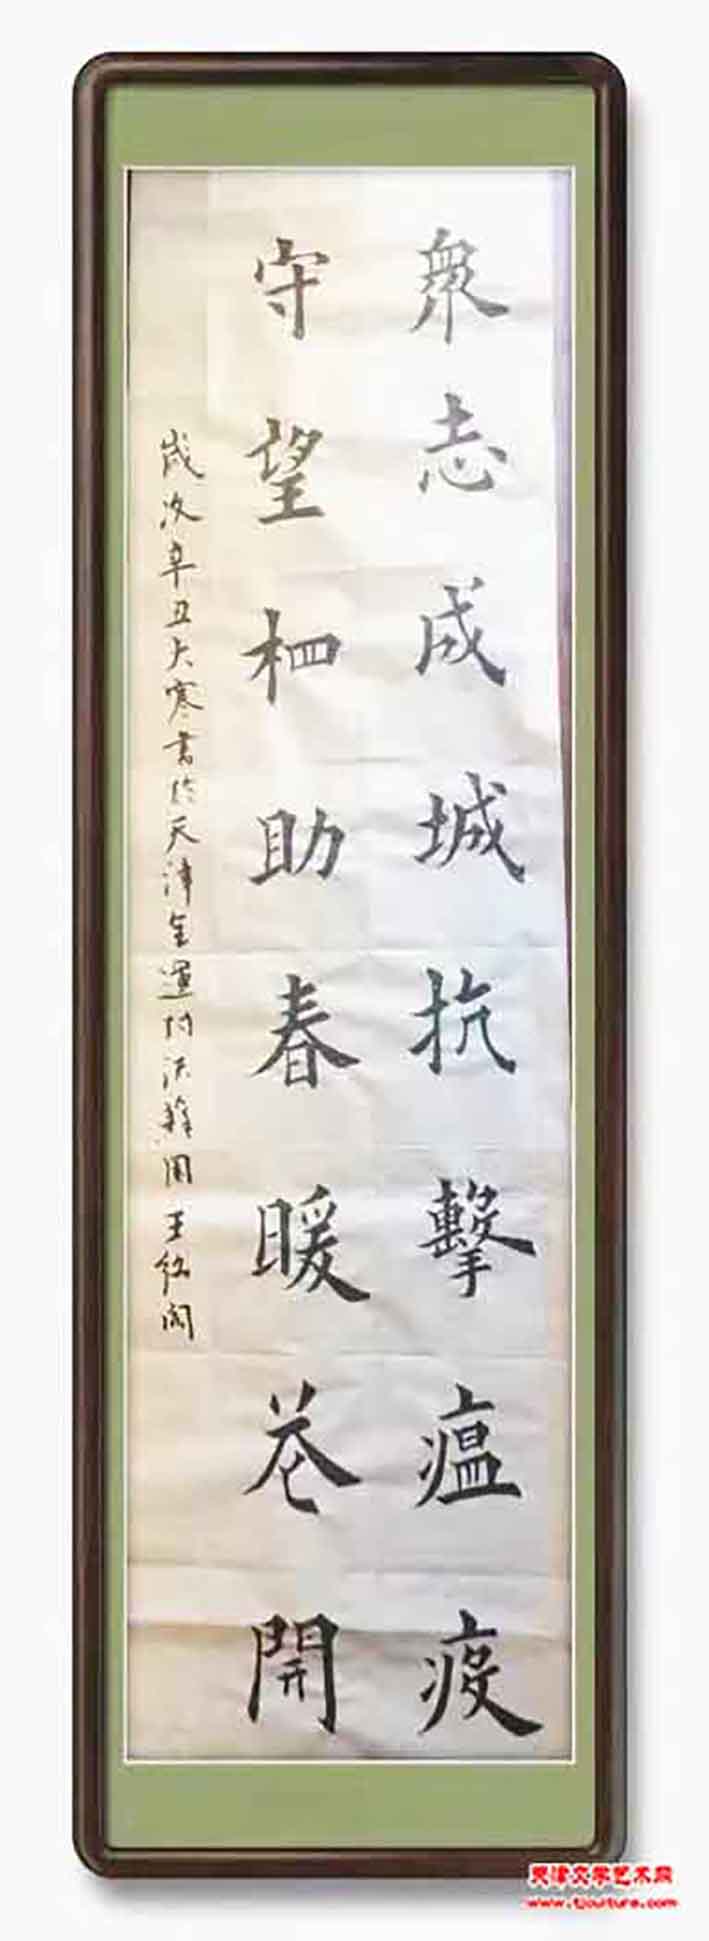 衆志成城抗擊瘟疫
守望相助春暖花開
歲次辛丑大寒書於天津金運村沃新園王紅閣
天津文学艺术网
www.tjculture.com